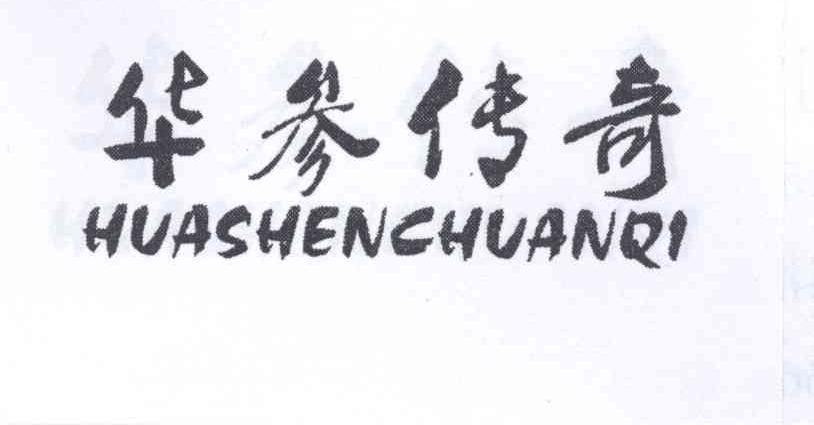 华参传奇
HUASHENCHUANQI